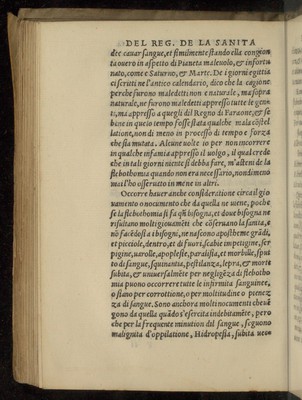 DEL REG. DE LA SANITA
dec cauar sangue, et similmente stando ella congion
ta ouero in aspetto di Pianeta maleuolo, et infortu
nato, come è Saturno, et Marte. De i giorni egittia
ci scritti ne l'antico calendario, dico che la cagione
perche furono maledetti non è naturale, ma sopra
naturale, ne furono maledetti appresso tutte le genti
ti, ma appresso a quegli del Regno di Faraone, et se
bene in questo tempo fosse stata qualche mala costel
latione, non di meno in processo di tempo è forza
che sia mutata. Alcune uolte io per non incorrere
in qualche infamia appresso il uolgo, il qual crede
che in tali giorni niente si debba fare, m'asteni de la
flebothomia quando non era necessario, nondimeno
mai l'ho osseruato in mene in altri.
Occorre hauer anche consideratione circa il gio
uamento o nocumento che da quella ne uiene, poche
se la flebothomia si fa quãdo bisogna, et doue bisogna ne
risultano molti giouamẽti che cõseruano la sanita, e
nõ facẽdosi a i bisogni, ne nascono aposteme grãdi,
et picciole, dentro, et di fuori, scabie impetigine, ser
pigine, uarolle, apoplesie, paralisia, et morbille, spu
to di sangue, squinantia, pestilanza, lepra, et morte
subita, et uniuersalmẽte per negligẽza di flebotho
mia puono occorrere tutte le infirmita sanguinee,
o siano per corrottione, o per moltitudine o pienez
za di sangue. Sono anchora molti nocumenti che uẽ
gono da quella quãdo s'esercita indebitamẽte, pero
che per la frequente minution del sangue, seguono
malignita d'oppilatione, Hidropesia, subita uec-